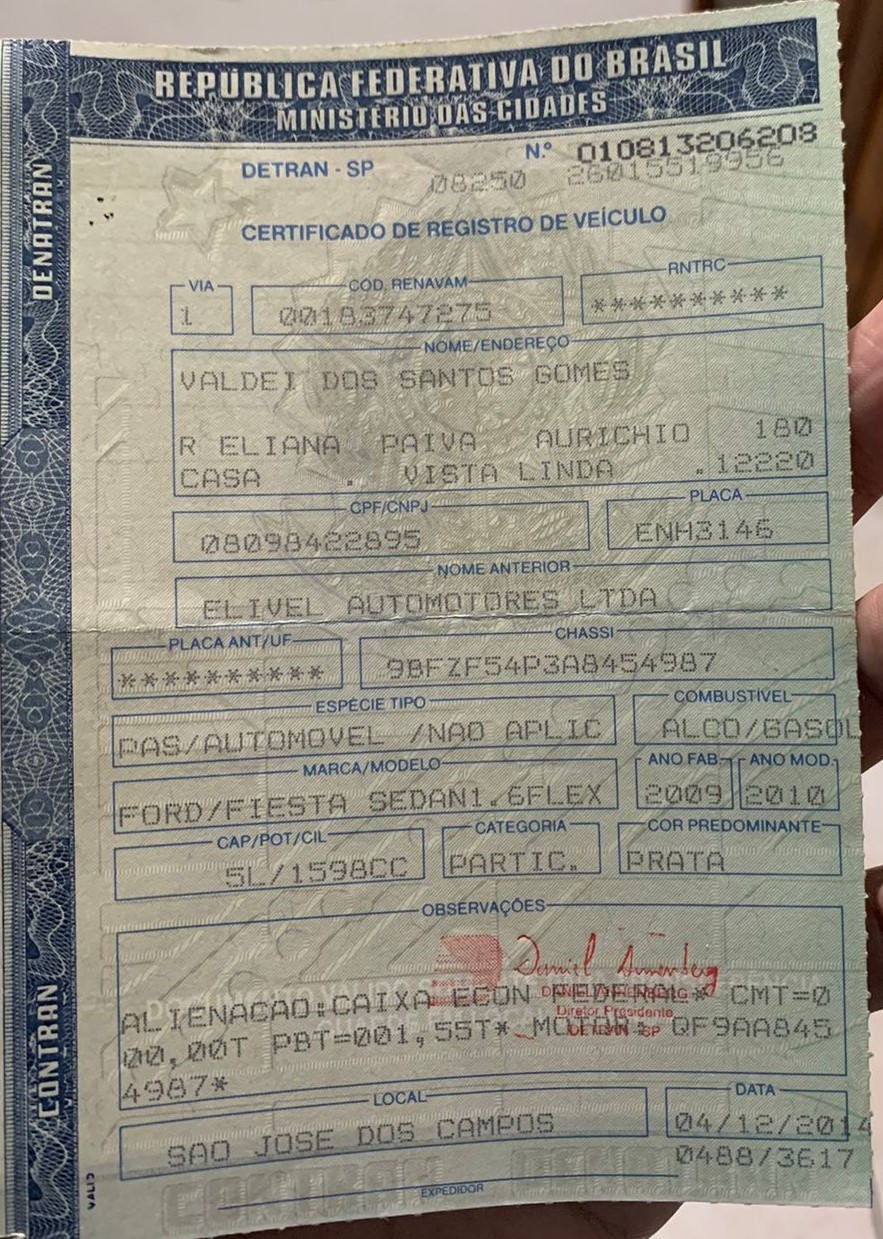 REPÚBLICA FEDERATIVA DO BRASIL
MINISTÉRIO DAS CIDADES
DENATRAN
CONTRAN
DETRAN - SP
N.º 010813206208
08250 26015519956
CERTIFICADO DE REGISTRO DE VEÍCULO
VIA
1
CÓD. RENAVAM
00183747275
RNTRC
**********
NOME/ENDEREÇO
VALDEI DOS SANTOS GOMES
R ELIANA PAIVA AURICHIO 180
CASA . VISTA LINDA .12220
CPF/CNPJ
08098422895
PLACA
ENH3146
NOME ANTERIOR
ELIVEL AUTOMOTORES LTDA
PLACA ANT/UF
**********
CHASSI
9BFZF54P3A8454987
ESPÉCIE TIPO
PAS/AUTOMOVEL /NAO APLIC
COMBUSTÍVEL
ALCO/GASOL
MARCA/MODELO
FORD/FIESTA SEDAN1.6FLEX
ANO FAB.
2009
ANO MOD.
2010
CAP/POT/CIL
5L/1598CC
CATEGORIA
PARTIC.
COR PREDOMINANTE
PRATA
OBSERVAÇÕES
ALIENACAO:CAIXA ECON FEDERAL* CMT=0
00,00T PBT=001,55T* MOTOR: QF9AA845
4987*
Diretor Presidente
DETRAN SP
LOCAL
SAO JOSE DOS CAMPOS
DATA
04/12/2014
0488/3617
EXPEDIDOR